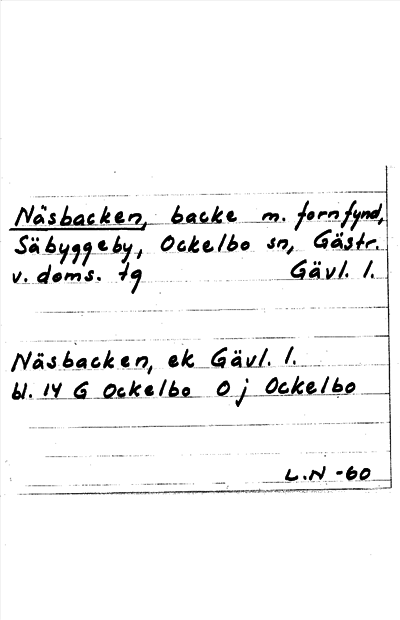 Näsbacken, backe m. fornfynd,
Säbyggeby, Ockelbo sn, Gästr.
v. doms. tg Gävl. l.
Näsbacken, ek Gävl. l.
bl. 14 G Ockelbo 0 j Ockelbo
L.N -60